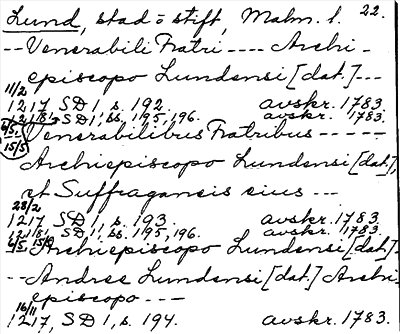 Lund, stad o stift, Malm. l. 22.
-- Venerabili Fratri ---- Archi-
episcopo Lundensi [dat.] ---
11/2
1217 SD 1, s. 192. avskr. 1783.
1218, SD 1, ss. 195, 196. avskr. 1783.
6/5, 15/5
Venerabilibus Fratribus -----
Archiepiscopo Lundensi [dat.],
et Suffraganeis eius ---
23/2
1217 SD 1, s. 193. avskr. 1783.
1218, SD 1, ss. 195, 196. avskr. 1783.
6/5, 15/5
-- Archiepiscopo Lundensi [dat.] --
-- Andree Lundensi [dat.] Archi-
episcopo ---
16/11
1217, SD 1, s. 194. avskr. 1783.